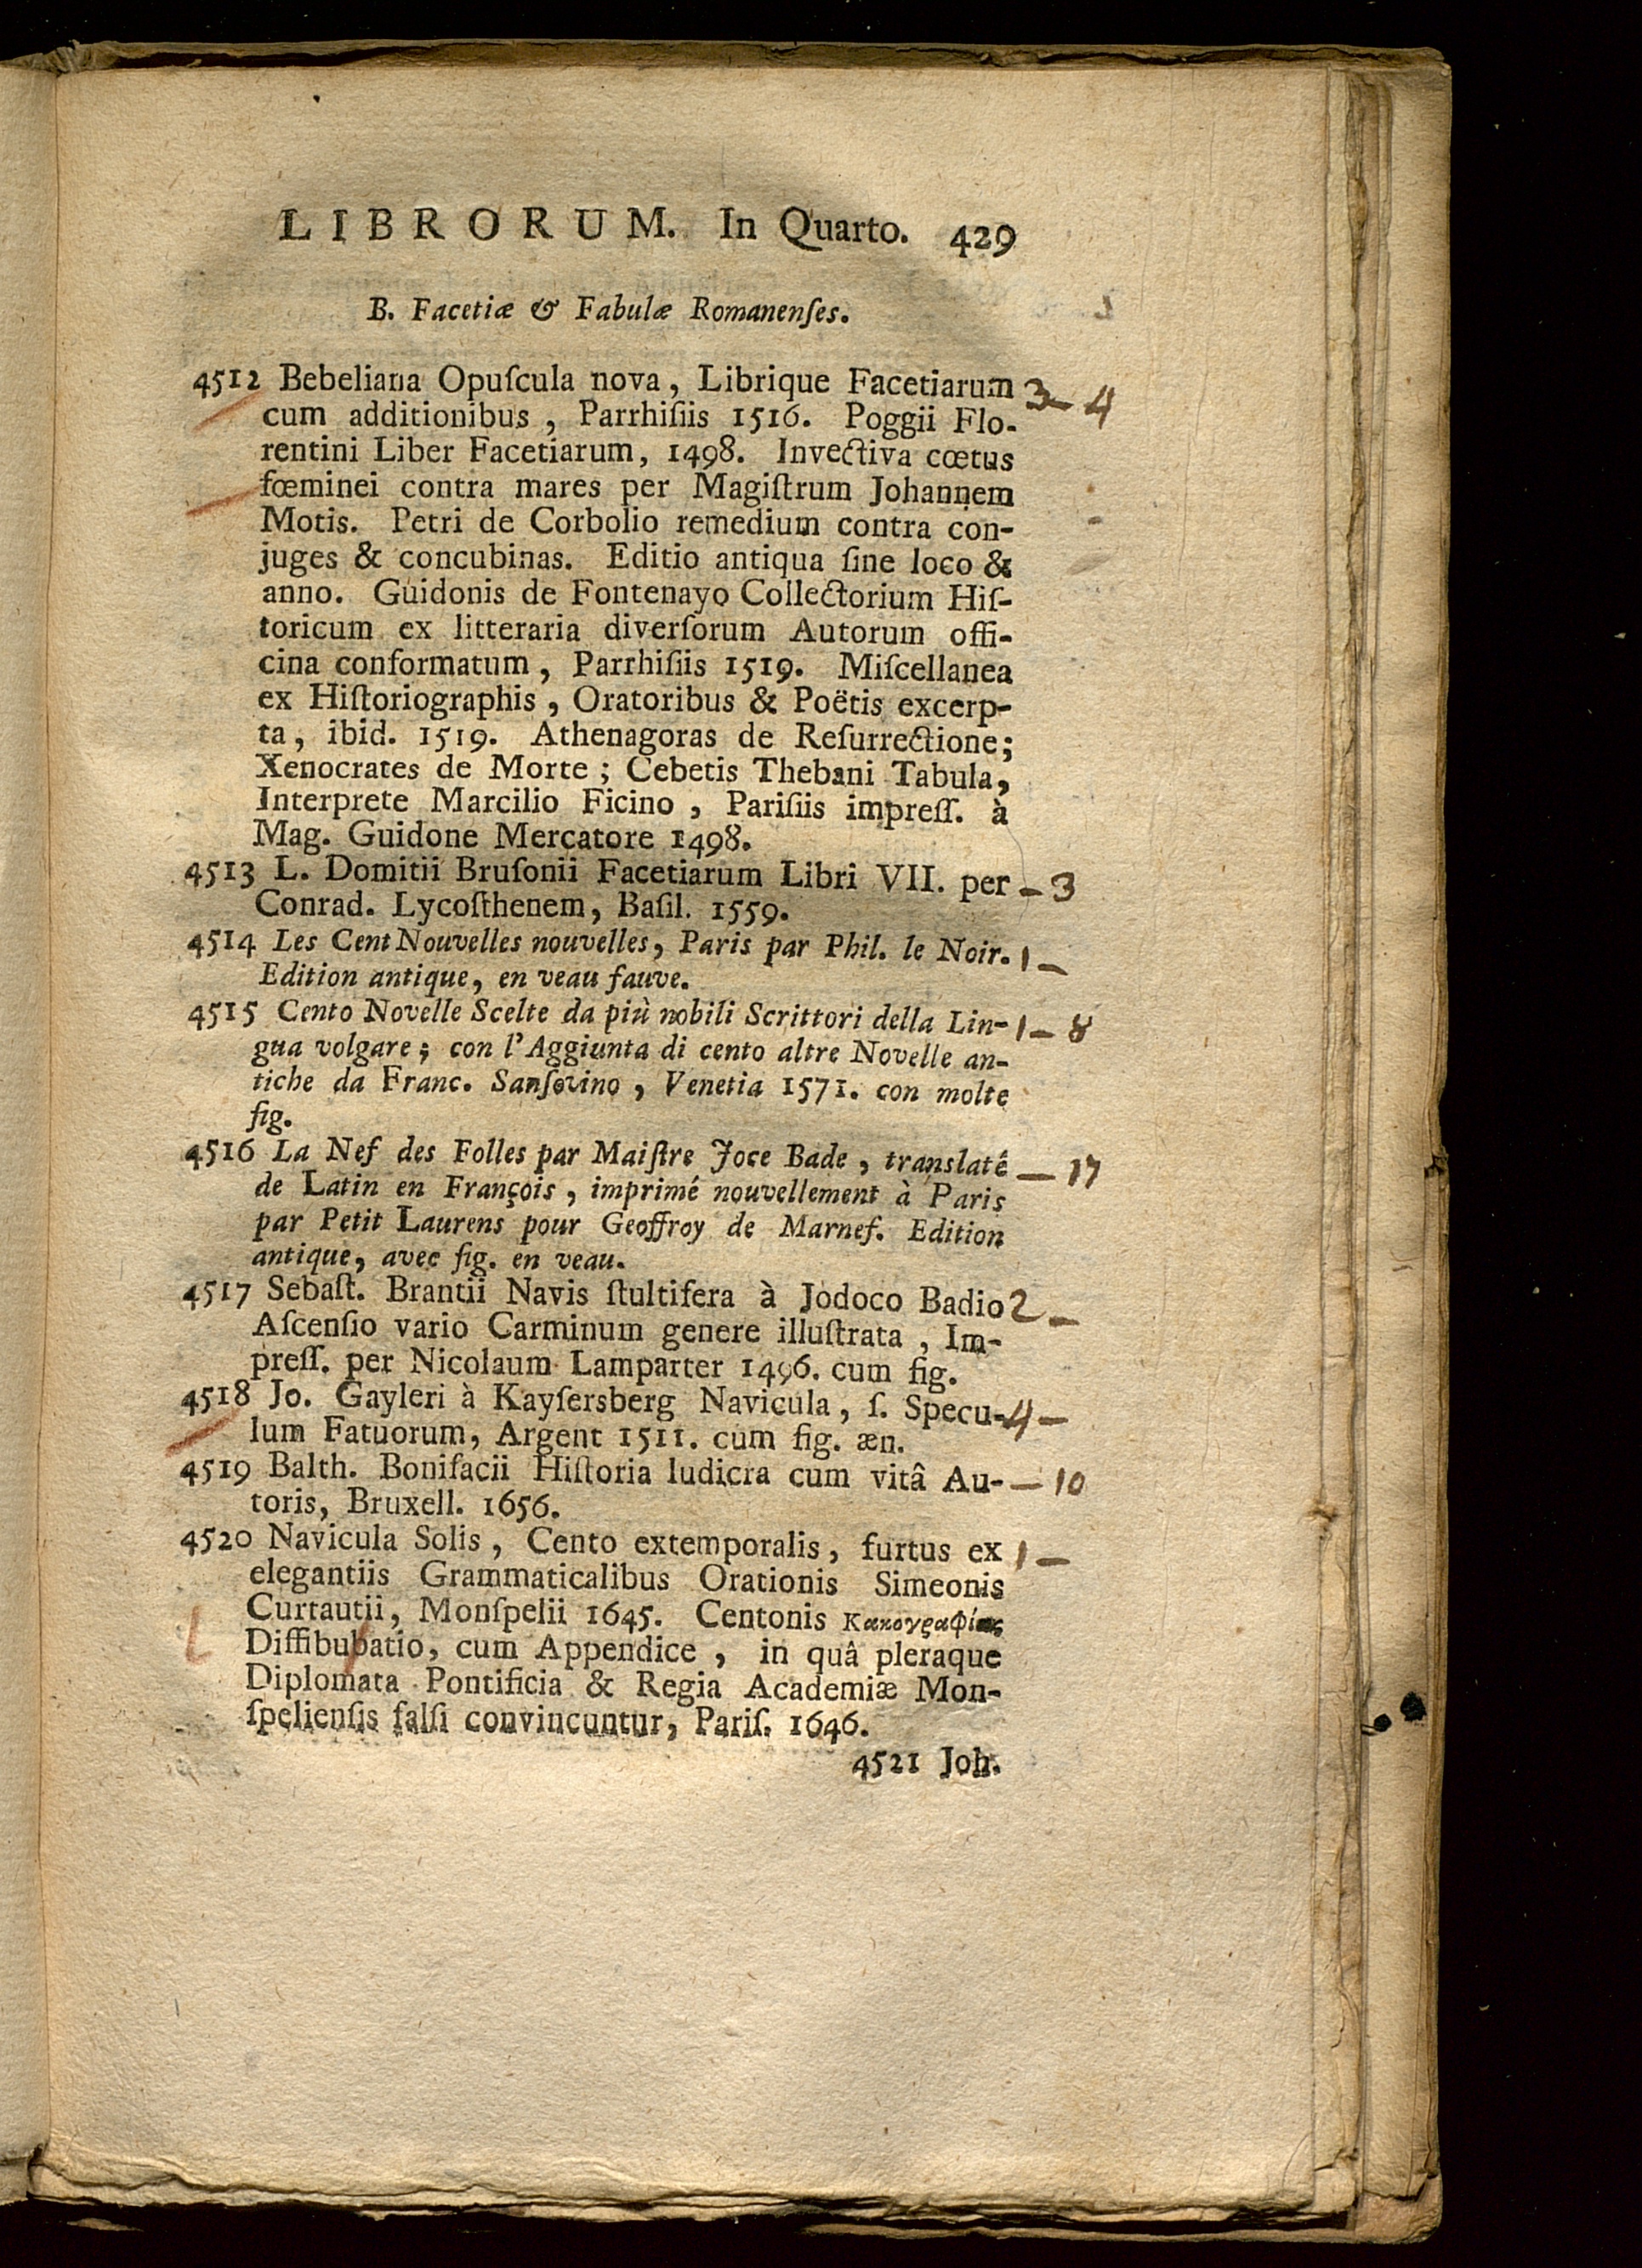 LIBRORUM. In Quarto. 429
B. Facetiæ & Fabulæ Romanenſes.
4512 Bebeliana Opuſcula nova, Librique Facetiarum 3 – 4
cum additionibus, Parrhiſiis 1516. Poggii Flo-
rentini Liber Facetiarum, 1498. Invectiva cœtus
fœminei contra mares per Magiſtrum Johannem
Motis. Petri de Corbolio remedium contra con-
juges & concubinas. Editio antiqua ſine loco &
anno. Guidonis de Fontenayo Collectorium Hiſ-
toricum ex litteraria diverſorum Autorum offi-
cina conformatum, Parrhiſiis 1519. Miſcellanea
ex Hiſtoriographis, Oratoribus & Poëtis excerp-
ta, ibid. 1519. Athenagoras de Reſurrectione;
Xenocrates de Morte; Cebetis Thebani Tabula,
Interprete Marcilio Ficino, Pariſiis impreſſ. à
Mag. Guidone Mercatore 1498.
4513 L. Domitii Bruſonii Facetiarum Libri VII. per – 3
Conrad. Lycoſthenem, Baſil. 1559.
4514 Les Cent Nouvelles nouvelles, Paris par Phil. le Noir. 1 –
Edition antique, en veau fauve.
4515 Cento Novelle Scelte da più nobili Scrittori della Lin- 1 – 8
gua volgare; con l'Aggiunta di cento altre Novelle an-
tiche da Franc. Sanſovino, Venetia 1571. con molte
fig.
4516 La Nef des Folles par Maiſtre Joce Bade, translaté – 17
de Latin en François, imprimé nouvellement à Paris
par Petit Laurens pour Geoffroy de Marnef. Edition
antique, avec fig. en veau.
4517 Sebaſt. Brantii Navis ſtultifera à Jodoco Badio 2 –
Aſcenſio vario Carminum genere illuſtrata, Im-
preſſ. per Nicolaum Lamparter 1496. cum fig.
4518 Jo. Gayleri à Kayſersberg Navicula, ſ. Specu- 4 –
lum Fatuorum, Argent 1511. cum fig. æn.
4519 Balth. Bonifacii Hiſtoria ludicra cum vitâ Au- – 10
toris, Bruxell. 1656.
4520 Navicula Solis, Cento extemporalis, furtus ex 1 –
elegantiis Grammaticalibus Orationis Simeonis
Curtautii, Monſpelii 1645. Centonis Κακογραφίας
Diffibubatio, cum Appendice, in quâ pleraque
Diplomata Pontificia & Regia Academiæ Mon-
ſpelienſis falſi convincuntur, Pariſ. 1646.
4521 Joh.